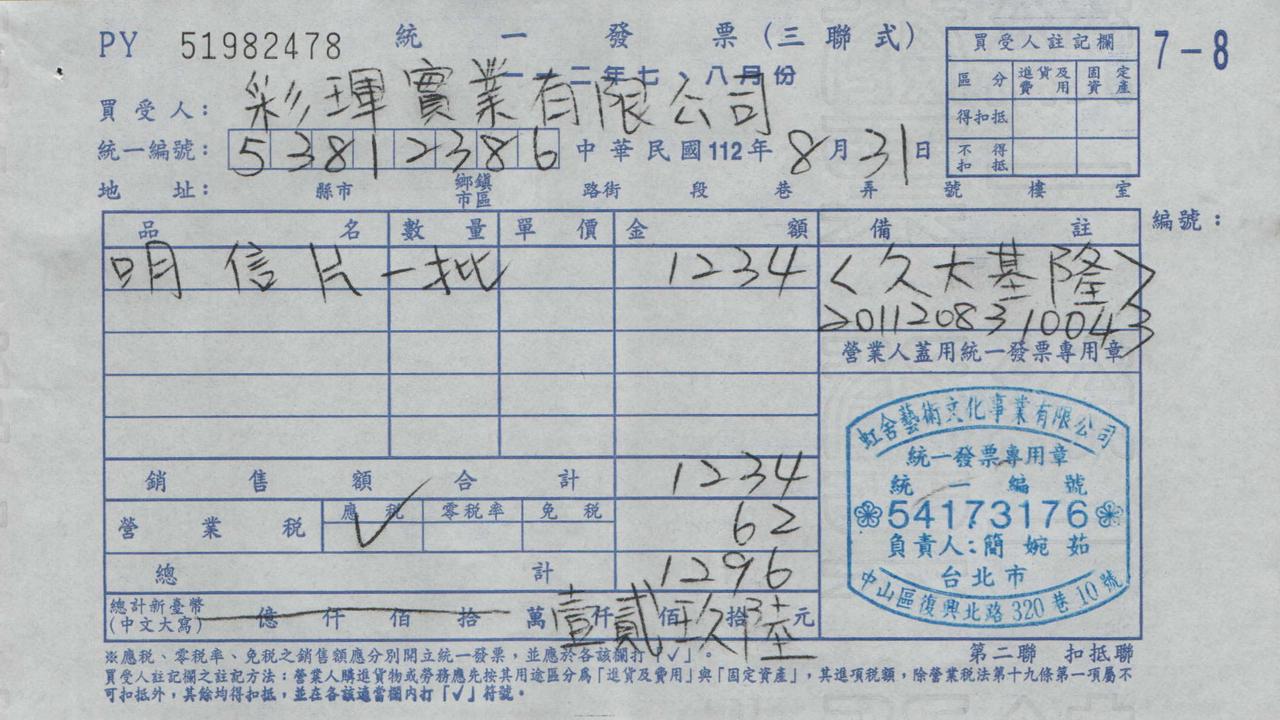 PY 51982478 統一發票(三聯式)
一一二年七、八月份
7-8
買受人註記欄
區分 進貨及費用 固定資產
得扣抵
不得扣抵
買受人: 彩琿實業有限公司
統一編號: 53812386 中華民國112年8月31日
地址: 縣市 鄉鎮市區 路街 段 巷 弄 號 樓 室
編號:
品名 數量 單價 金額 備註
明信片 一批 1234 〈久大基隆〉
20112083110043
營業人蓋用統一發票專用章
銷售額合計 1234
營業稅 應稅 ✓ 零稅率 免稅 62
總計 1296
總計新臺幣(中文大寫) 億 仟 佰 拾 萬 壹仟 貳佰 玖拾 陸元
虹舍藝術文化事業有限公司
統一發票專用章
統一編號
54173176
負責人:簡婉茹
台北市
中山區復興北路320巷10號
第二聯 扣抵聯
※應稅、零稅率、免稅之銷售額應分別開立統一發票,並應於各該欄打「✓」。
買受人註記欄之註記方法:營業人購進貨物或勞務應先按其用途區分為「進貨及費用」與「固定資產」,其進項稅額,除營業稅法第十九條第一項屬不
可扣抵外,其餘均得扣抵,並在各該適當欄內打「✓」符號。